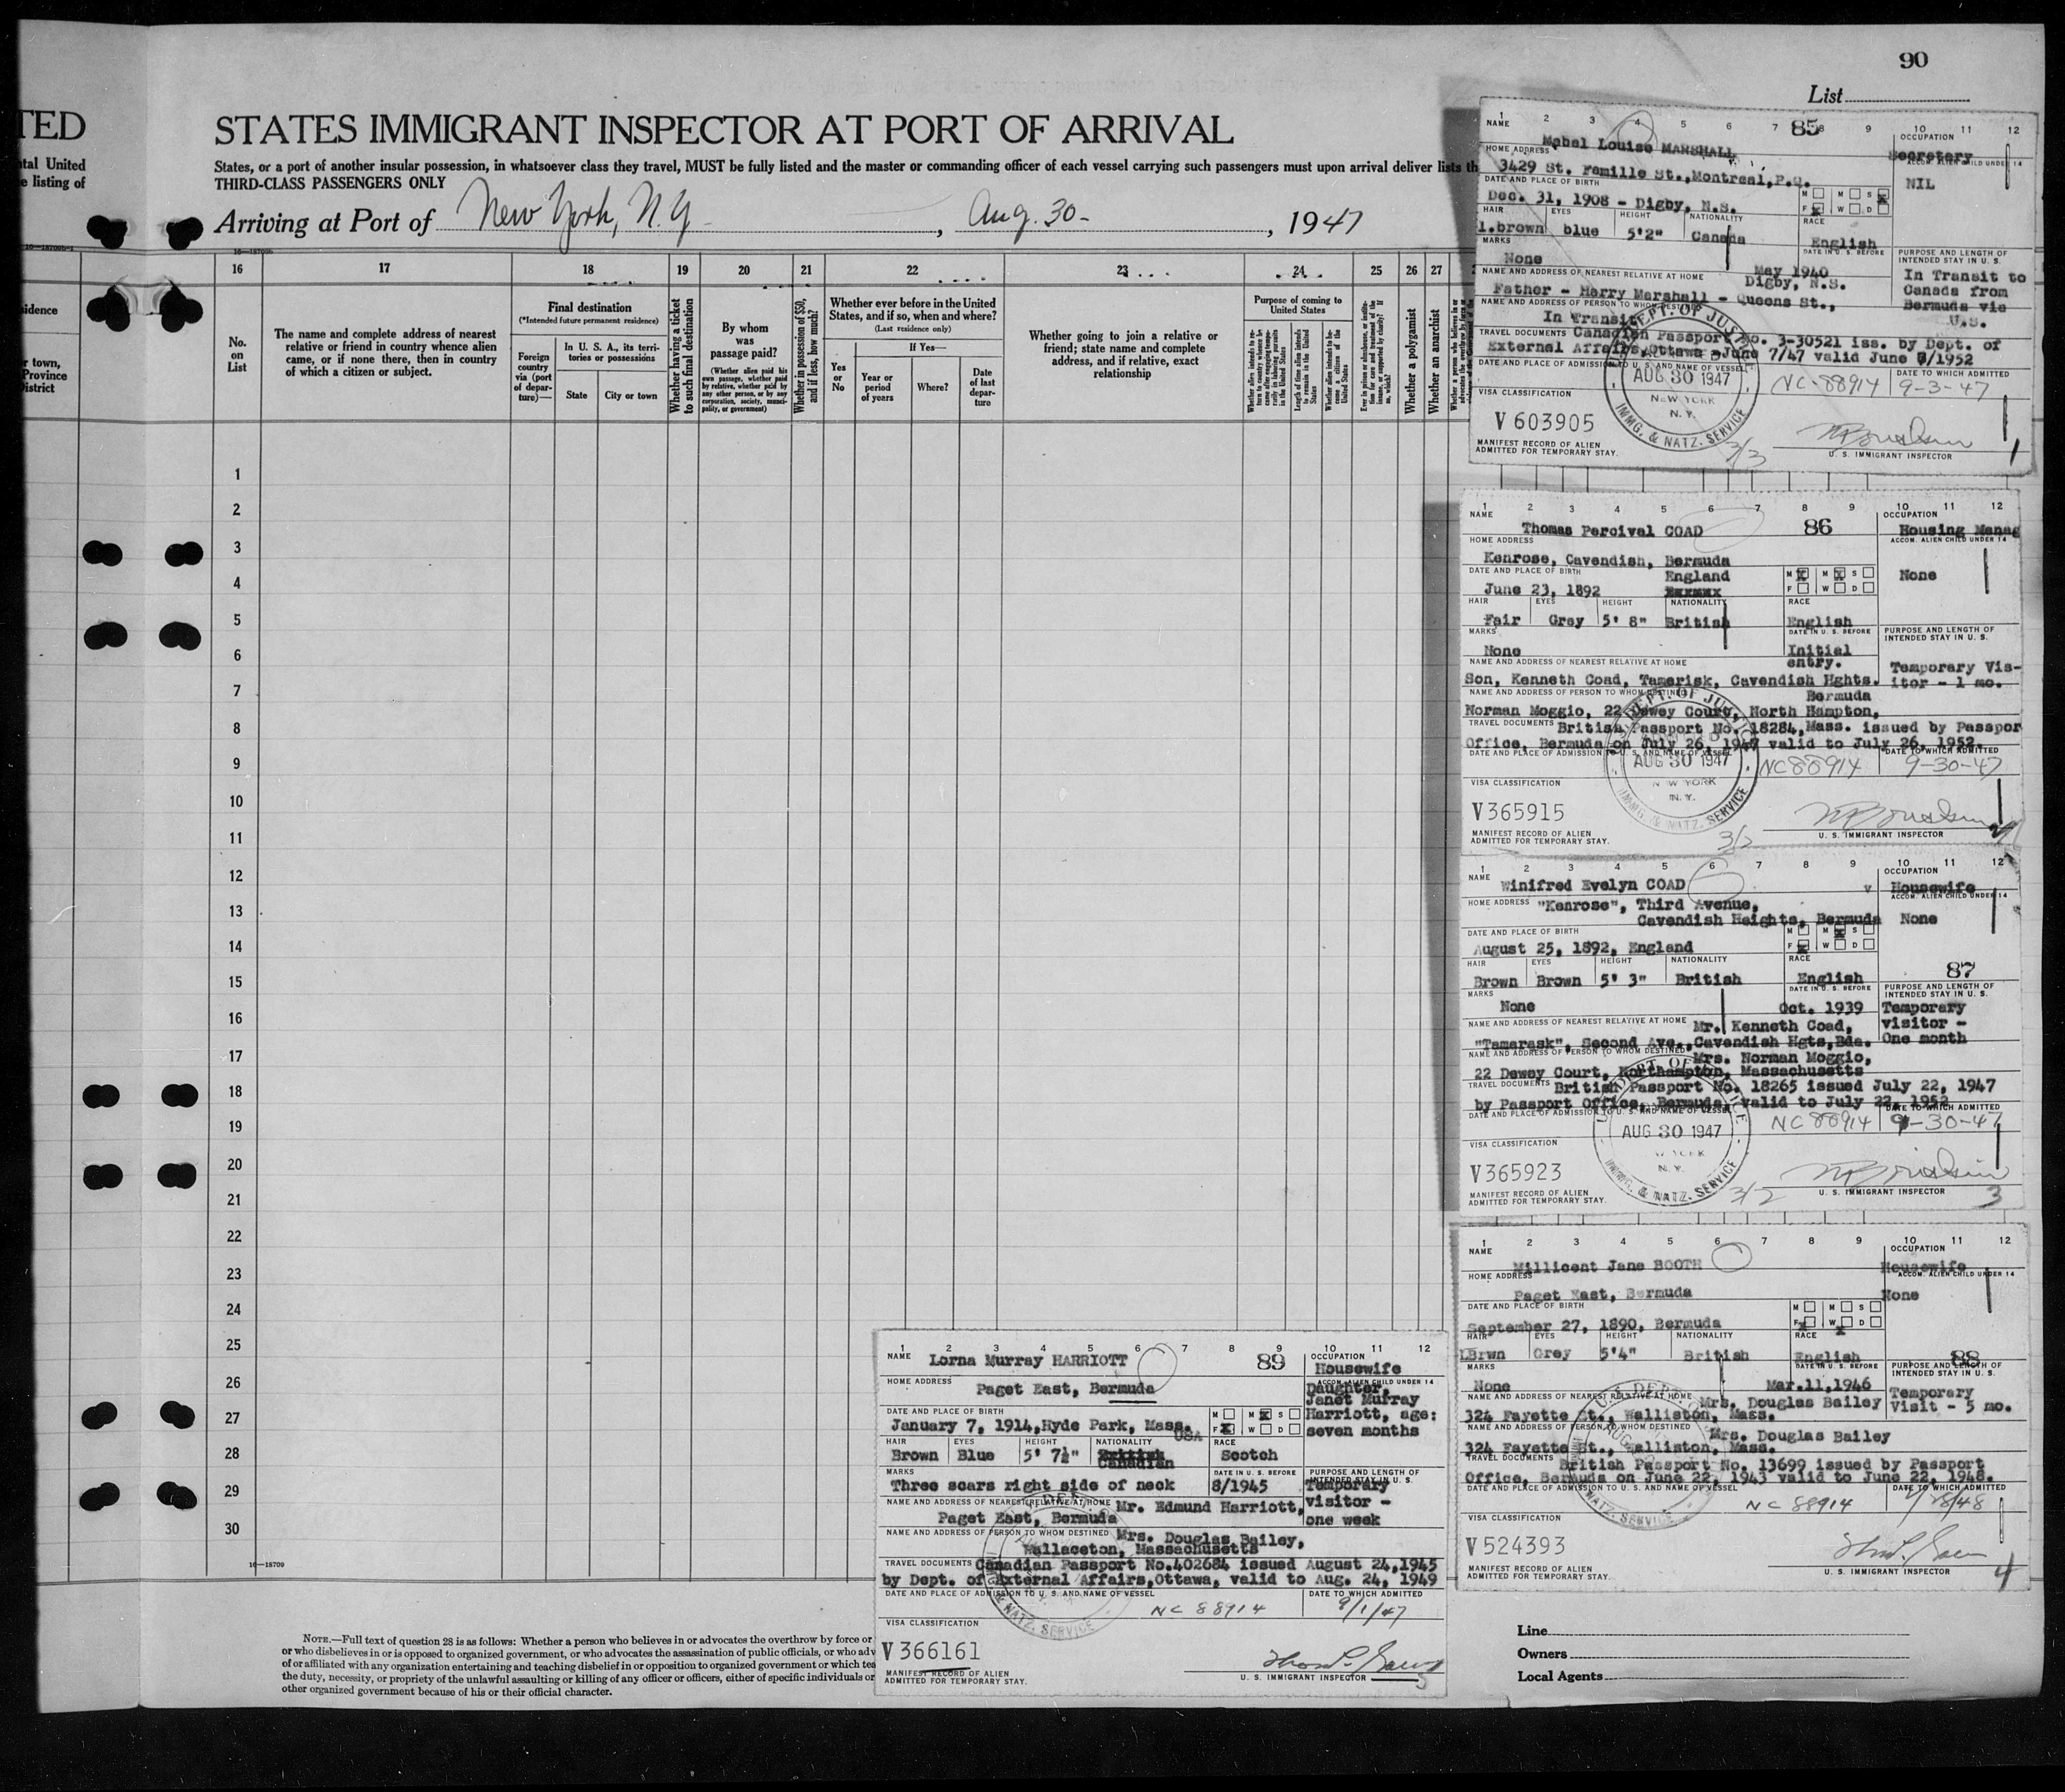 90
List
TED
STATES IMMIGRANT INSPECTOR AT PORT OF ARRIVAL
ntal United
e listing of
States, or a port of another insular possession, in whatsoever class they travel, MUST be fully listed and the master or commanding officer of each vessel carrying such passengers must upon arrival deliver lists th
THIRD-CLASS PASSENGERS ONLY
Arriving at Port of New York, N.Y. , Aug. 30 , 1947
16 17 18 19 20 21 22 23 24 25 26 27
idence
r town,
Province
District
No. on List
The name and complete address of nearest relative or friend in country whence alien came, or if none there, then in country of which a citizen or subject.
Final destination
(*Intended future permanent residence)
Foreign country via (port of departure)—
In U. S. A., its territories or possessions
State
City or town
Whether having a ticket to such final destination
By whom was passage paid?
(Whether alien paid his own passage, whether paid by relative, whether paid by any other person, or by any corporation, society, municipality, or government)
Whether in possession of $50, and if less, how much?
Whether ever before in the United States, and if so, when and where?
(Last residence only)
If Yes—
Yes or No
Year or period of years
Where?
Date of last departure
Whether going to join a relative or friend; state name and complete address, and if relative, exact relationship
Purpose of coming to United States
Length of time alien intends to remain in the United States
Whether a polygamist
Whether an anarchist
1
2
3
4
5
6
7
8
9
10
11
12
13
14
15
16
17
18
19
20
21
22
23
24
25
26
27
28
29
30
16—18709
NOTE.—Full text of question 28 is as follows: Whether a person who believes in or advocates the overthrow by force or
or who disbelieves in or is opposed to organized government, or who advocates the assassination of public officials, or who adv
of or affiliated with any organization entertaining and teaching disbelief in or opposition to organized government or which tea
the duty, necessity, or propriety of the unlawful assaulting or killing of any officer or officers, either of specific individuals or
other organized government because of his or their official character.
1 2 3 4 5 6 7 8 9 10 11 12
85
NAME Mabel Louise MARSHALL
OCCUPATION Secretary
HOME ADDRESS 3429 St. Famille St.,Montreal,P.Q.
ACCOM. ALIEN CHILD UNDER 14 NIL
DATE AND PLACE OF BIRTH
Dec. 31, 1908 - Digby, N.S.
M M S X
F X W D
HAIR EYES HEIGHT NATIONALITY RACE
l.brown blue 5'2" Canada English
MARKS None
DATE IN U. S. BEFORE May 1940
PURPOSE AND LENGTH OF INTENDED STAY IN U. S.
In Transit to
Canada from
Bermuda via
U.S.
NAME AND ADDRESS OF NEAREST RELATIVE AT HOME Digby, N.S.
Father - Harry Marshall - Queens St.,
NAME AND ADDRESS OF PERSON TO WHOM DESTINED
In Transit
TRAVEL DOCUMENTS Canadian Passport No. 3-30521 iss. by Dept. of
External Affairs,Ottawa - June 7/47 valid June /1952
DATE AND PLACE OF ADMISSION TO U. S. AND NAME OF VESSEL
DATE TO WHICH ADMITTED
DEPT. OF JUS
AUG 30 1947
NEW YORK
N. Y.
IMMG. & NATZ. SERVICE
NC-88914 9-3-47
VISA CLASSIFICATION
V 603905
3/3
MANIFEST RECORD OF ALIEN
ADMITTED FOR TEMPORARY STAY.
U. S. IMMIGRANT INSPECTOR
1
1 2 3 4 5 6 7 8 9 10 11 12
NAME Thomas Percival COAD
86
OCCUPATION Housing Manag
HOME ADDRESS
Kenrose, Cavendish, Bermuda
ACCOM. ALIEN CHILD UNDER 14 None
DATE AND PLACE OF BIRTH England
June 23, 1892
M X M X S
F W D
HAIR EYES HEIGHT NATIONALITY RACE
Fair Grey 5' 8" British English
MARKS None
DATE IN U. S. BEFORE Initial entry.
PURPOSE AND LENGTH OF INTENDED STAY IN U. S.
Temporary Vis-
itor - 1 mo.
NAME AND ADDRESS OF NEAREST RELATIVE AT HOME
Son, Kenneth Coad, Tamarisk, Cavendish Hghts.
Bermuda
NAME AND ADDRESS OF PERSON TO WHOM DESTINED
Norman Moggio, 22 Dewey Court, North Hampton,
Mass.
TRAVEL DOCUMENTS British Passport No. 18284, issued by Passpor
Office, Bermuda on July 26, 1947 valid to July 26, 1952.
DATE AND PLACE OF ADMISSION TO U. S. AND NAME OF VESSEL
DATE TO WHICH ADMITTED
DEPT. OF JUS
AUG 30 1947
NEW YORK
N. Y.
IMMG. & NATZ. SERVICE
NC 88914 9-30-47
VISA CLASSIFICATION
V365915
3/2
MANIFEST RECORD OF ALIEN
ADMITTED FOR TEMPORARY STAY.
U. S. IMMIGRANT INSPECTOR
1 2 3 4 5 6 7 8 9 10 11 12
NAME Winifred Evelyn COAD
OCCUPATION Housewife
HOME ADDRESS "Kenrose", Third Avenue,
Cavendish Heights, Bermuda
ACCOM. ALIEN CHILD UNDER 14 None
DATE AND PLACE OF BIRTH
August 25, 1892, England
M M X S
F X W D
87
HAIR EYES HEIGHT NATIONALITY RACE
Brown Brown 5' 3" British English
MARKS None
DATE IN U. S. BEFORE Oct. 1939
PURPOSE AND LENGTH OF INTENDED STAY IN U. S.
Temporary
visitor -
One month
NAME AND ADDRESS OF NEAREST RELATIVE AT HOME Mr. Kenneth Coad,
"Tamarask", Second Ave.,Cavendish Hgts,Bda.
NAME AND ADDRESS OF PERSON TO WHOM DESTINED Mrs. Norman Moggio,
22 Dewey Court, Northampton, Massachusetts
TRAVEL DOCUMENTS British Passport No. 18265 issued July 22, 1947
by Passport Office, Bermuda, valid to July 22, 1952
DATE AND PLACE OF ADMISSION TO U. S. AND NAME OF VESSEL
DATE TO WHICH ADMITTED
AUG 30 1947
N. Y.
IMMG. & NATZ. SERVICE
NC 88914 9-30-47
VISA CLASSIFICATION
V365923
3/2
MANIFEST RECORD OF ALIEN
ADMITTED FOR TEMPORARY STAY.
U. S. IMMIGRANT INSPECTOR
3
1 2 3 4 5 6 7 8 9 10 11 12
NAME Millicent Jane BOOTH
OCCUPATION Housewife
HOME ADDRESS
Paget East, Bermuda
ACCOM. ALIEN CHILD UNDER 14 None
DATE AND PLACE OF BIRTH
September 27, 1890, Bermuda
M M S
F X W X D
HAIR EYES HEIGHT NATIONALITY RACE
LBrwn Grey 5'4" British English
88
MARKS None
DATE IN U. S. BEFORE Mar.11,1946
PURPOSE AND LENGTH OF INTENDED STAY IN U. S.
Temporary
Visit - 5 mo.
NAME AND ADDRESS OF NEAREST RELATIVE AT HOME Mrs. Douglas Bailey
324 Fayette St., Walliston, Mass.
NAME AND ADDRESS OF PERSON TO WHOM DESTINED Mrs. Douglas Bailey
324 Fayette St., Walliston, Mass.
TRAVEL DOCUMENTS British Passport No. 13699 issued by Passport
Office, Bermuda on June 22, 1943 valid to June 22, 1948.
DATE AND PLACE OF ADMISSION TO U. S. AND NAME OF VESSEL
DATE TO WHICH ADMITTED
NATZ. SERVICE
NC 88914
VISA CLASSIFICATION
V524393
MANIFEST RECORD OF ALIEN
ADMITTED FOR TEMPORARY STAY.
U. S. IMMIGRANT INSPECTOR
4
1 2 3 4 5 6 7 8 9 10 11 12
NAME Lorna Murray HARRIOTT
89
OCCUPATION Housewife
HOME ADDRESS
Paget East, Bermuda
ACCOM. ALIEN CHILD UNDER 14
Daughter,
Janet Murray
Harriott, age:
seven months
DATE AND PLACE OF BIRTH
January 7, 1914,Hyde Park, Mass.
USA
M M X S
F X W D
HAIR EYES HEIGHT NATIONALITY RACE
Brown Blue 5' 7½" British Canadian Scotch
MARKS
Three scars right side of neck
DATE IN U. S. BEFORE 8/1945
PURPOSE AND LENGTH OF INTENDED STAY IN U. S.
Temporary
visitor -
one week
NAME AND ADDRESS OF NEAREST RELATIVE AT HOME Mr. Edmund Harriott,
Paget East, Bermuda
NAME AND ADDRESS OF PERSON TO WHOM DESTINED Mrs. Douglas Bailey,
Wallaceton, Massachusetts
TRAVEL DOCUMENTS Canadian Passport No.402684 issued August 24,1945
by Dept. of External Affairs,Ottawa, valid to Aug. 24, 1949
DATE AND PLACE OF ADMISSION TO U. S. AND NAME OF VESSEL
DATE TO WHICH ADMITTED
& NATZ. SERVICE
NC 88914
VISA CLASSIFICATION
V366161
MANIFEST RECORD OF ALIEN
ADMITTED FOR TEMPORARY STAY.
U. S. IMMIGRANT INSPECTOR
5
Line
Owners
Local Agents